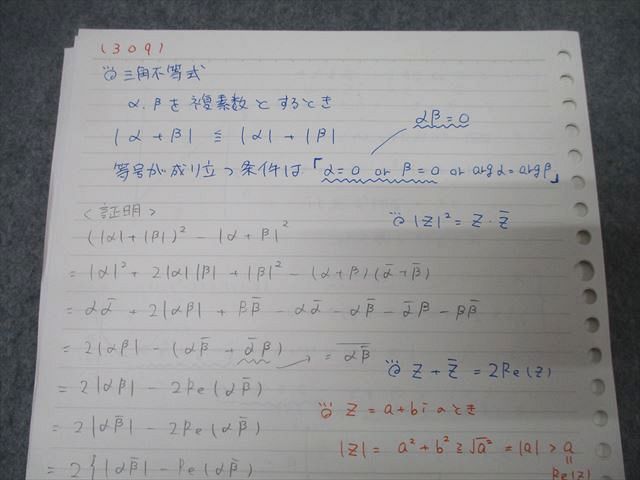 (309)
三角不等式
α.βを複素数とするとき
|α+β| ≦ |α|+|β|
αβ=0
等号が成り立つ条件は「α=0 or β=0 or argα=argβ」
<証明>
|Z|²=Z・Z̄
(|α|+|β|)²-|α+β|²
=|α|²+2|α||β|+|β|²-(α+β)(ᾱ+β̄)
=αᾱ+2|αβ|+ββ̄-αᾱ-αβ̄-ᾱβ-ββ̄
=2|αβ|-(αβ̄+ᾱβ)
= \overline{αβ̄}
Z+Z̄=2Re(z)
=2|αβ|-2Re(αβ̄)
Z=a+biのとき
=2|αβ̄|-2Re(αβ̄)
|Z|= a²+b²≧√a²=|a|>a
=2{|αβ̄|-Re(αβ̄)
Re(z)